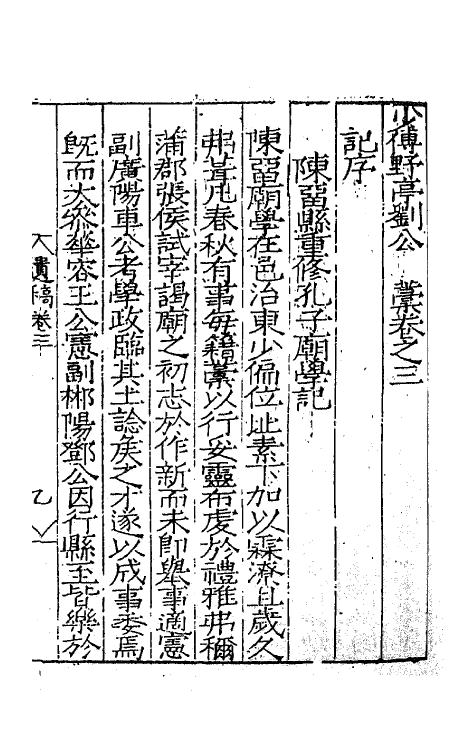 少傅野亭劉公　藁卷之三
記序
陳留縣重修孔子廟學記
陳留廟學在邑治東少偏位址素下加以霖潦且歲久
弗葺凡春秋有事每籍藁以行妥靈布虔於禮雅弗稱
蒲郡張侯試宰謁廟之初志於作新而未即舉事適憲
副廣陽車公考學政臨其土諗矦之才遂以成事委焉
既而大叅華容王公憲副郴陽鄧公因行縣至皆樂於
遺稿卷三
乙